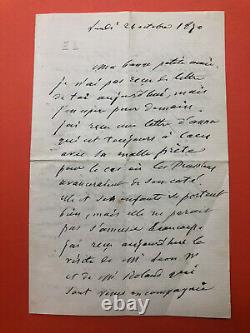 Lundi 24 octobre 1870
Ma bonne petite amie
je n'ai pas reçu de lettre
de toi aujourd'hui, mais
j'espère pour demain.
J'ai reçu une lettre d'anna
qui est toujours à Caen
avec sa malle prête
pour le cas où les Prussiens
avanceraient de son coté
elle et ses enfants se portent
bien, mais elle ne parait
pas s'amuser beaucoup.
J'ai reçu aujourd'hui la
visite de Mr
et de Mr Roland qui
sont venus en compagnie